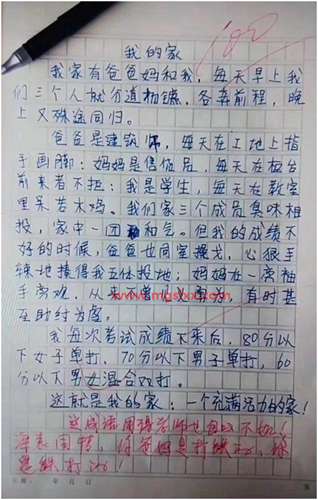 我的家
我家有爸爸妈和我，每天早上我
们三个人就分道扬镳，各奔前程，晚
上又殊途同归。
爸爸是建筑师，每天在工地上指
手画脚；妈妈是售货员，每天在柜台
前来者不拒；我是学生，每天在教室
里呆若木鸡。我们家三个成员臭味相
投，家中一团和气。但我的成绩不
好的时候，爸爸也同室操戈，心狠手
辣地揍得我五体投地；妈妈在一旁袖
手旁观，从来不曾见义勇为，有时甚
至助纣为虐。
我每次考试成绩下来后，80分以
下女子单打，70分以下男子单打，60
分以下男女混合双打。
这就是我的家：一个充满活力的家！
这成语用得